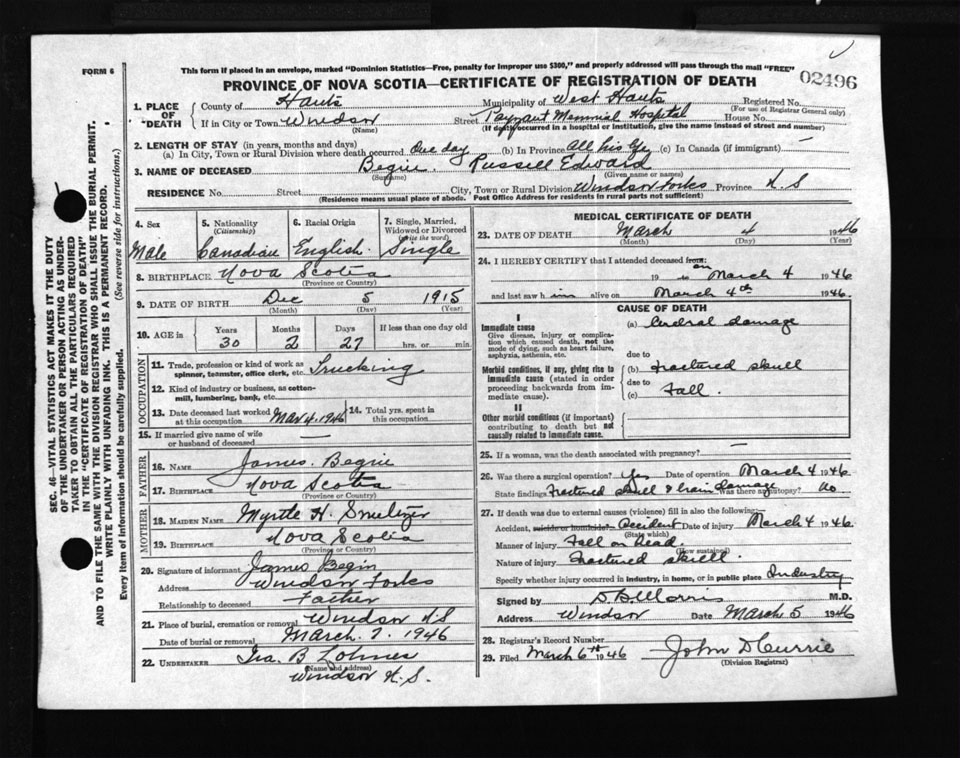 FORM 6
This form if placed in an envelope, marked "Dominion Statistics—Free, penalty for improper use $300," and properly addressed will pass through the mail "FREE"
PROVINCE OF NOVA SCOTIA—CERTIFICATE OF REGISTRATION OF DEATH
02496
1. PLACE OF DEATH
County of Hants Municipality of West Hants Registered No.
(For use of Registrar General only)
If in City or Town Windsor Street Payzant Memorial Hospital House No.
(Name) (If death occurred in a hospital or institution, give the name instead of street and number)
2. LENGTH OF STAY (in years, months and days)
(a) In City, Town or Rural Division where death occurred One day (b) In Province All his life (c) In Canada (if immigrant) —
3. NAME OF DECEASED Begin. Russell Edward
(Surname) (Given name or names)
RESIDENCE No. Street City, Town or Rural Division Windsor Forks Province N.S
(Residence means usual place of abode. Post Office Address for residents in rural parts not sufficient)
4. Sex
Male
5. Nationality
(Citizenship)
Canadian
6. Racial Origin
English
7. Single, Married, Widowed or Divorced
(Write the word)
Single
8. BIRTHPLACE Nova Scotia
(Province or Country)
9. DATE OF BIRTH Dec 5 1915
(Month) (Day) (Year)
10. AGE in
Years Months Days If less than one day old
30 2 27 hrs. or min.
OCCUPATION
11. Trade, profession or kind of work as spinner, teamster, office clerk, etc. Trucking
12. Kind of industry or business, as cotton-mill, lumbering, bank, etc.
13. Date deceased last worked at this occupation Mar 4. 1946
14. Total yrs. spent in this occupation
15. If married give name of wife or husband of deceased —
FATHER
16. NAME James. Begin
17. BIRTHPLACE Nova Scotia
(Province or Country)
MOTHER
18. MAIDEN NAME Myrtle H. Smeltzer
19. BIRTHPLACE Nova Scotia
(Province or Country)
20. Signature of informant James Begin
Address Windsor Forks
Relationship to deceased Father
21. Place of burial, cremation or removal Windsor N.S
Date of burial or removal March. 7. 1946
22. UNDERTAKER Ira. B Lohnes
(Name and address)
Windsor N.S.
MEDICAL CERTIFICATE OF DEATH
23. DATE OF DEATH March 4 1946
(Month) (Day) (Year)
24. I HEREBY CERTIFY that I attended deceased from: on
19 to March 4 1946
and last saw him alive on March 4th 1946.
CAUSE OF DEATH
I
Immediate cause
Give disease, injury or complication which caused death, not the mode of dying, such as heart failure, asphyxia, asthenia, etc.
(a) Cerebral damage
due to
Morbid conditions, if any, giving rise to immediate cause (stated in order proceeding backwards from immediate cause).
(b) Fractured skull
due to
(c) Fall.
II
Other morbid conditions (if important) contributing to death but not causally related to immediate cause.
25. If a woman, was the death associated with pregnancy? —
26. Was there a surgical operation? Yes Date of operation March 4 1946
State findings Fractured skull & brain damage Was there an autopsy? No
27. If death was due to external causes (violence) fill in also the following:—
Accident, suicide or homicide? Accident Date of injury March 4 1946
(State which)
Manner of injury Fall on head.
(How sustained)
Nature of injury Fractured skull
Specify whether injury occurred in industry, in home, or in public place Industry
Signed by D.B. Morris M.D.
Address Windsor Date March 5 1946
28. Registrar's Record Number
29. Filed March 6th 1946 John D Currie
(Division Registrar)
SEC. 46—VITAL STATISTICS ACT MAKES IT THE DUTY
OF THE UNDERTAKER OR PERSON ACTING AS UNDER-
TAKER TO OBTAIN ALL THE PARTICULARS REQUIRED
IN THE "CERTIFICATE OF REGISTRATION OF DEATH"
AND TO FILE THE SAME WITH THE DIVISION REGISTRAR WHO SHALL ISSUE THE BURIAL PERMIT.
WRITE PLAINLY WITH UNFADING INK. THIS IS A PERMANENT RECORD.
Every item of information should be carefully supplied. (See reverse side for instructions.)